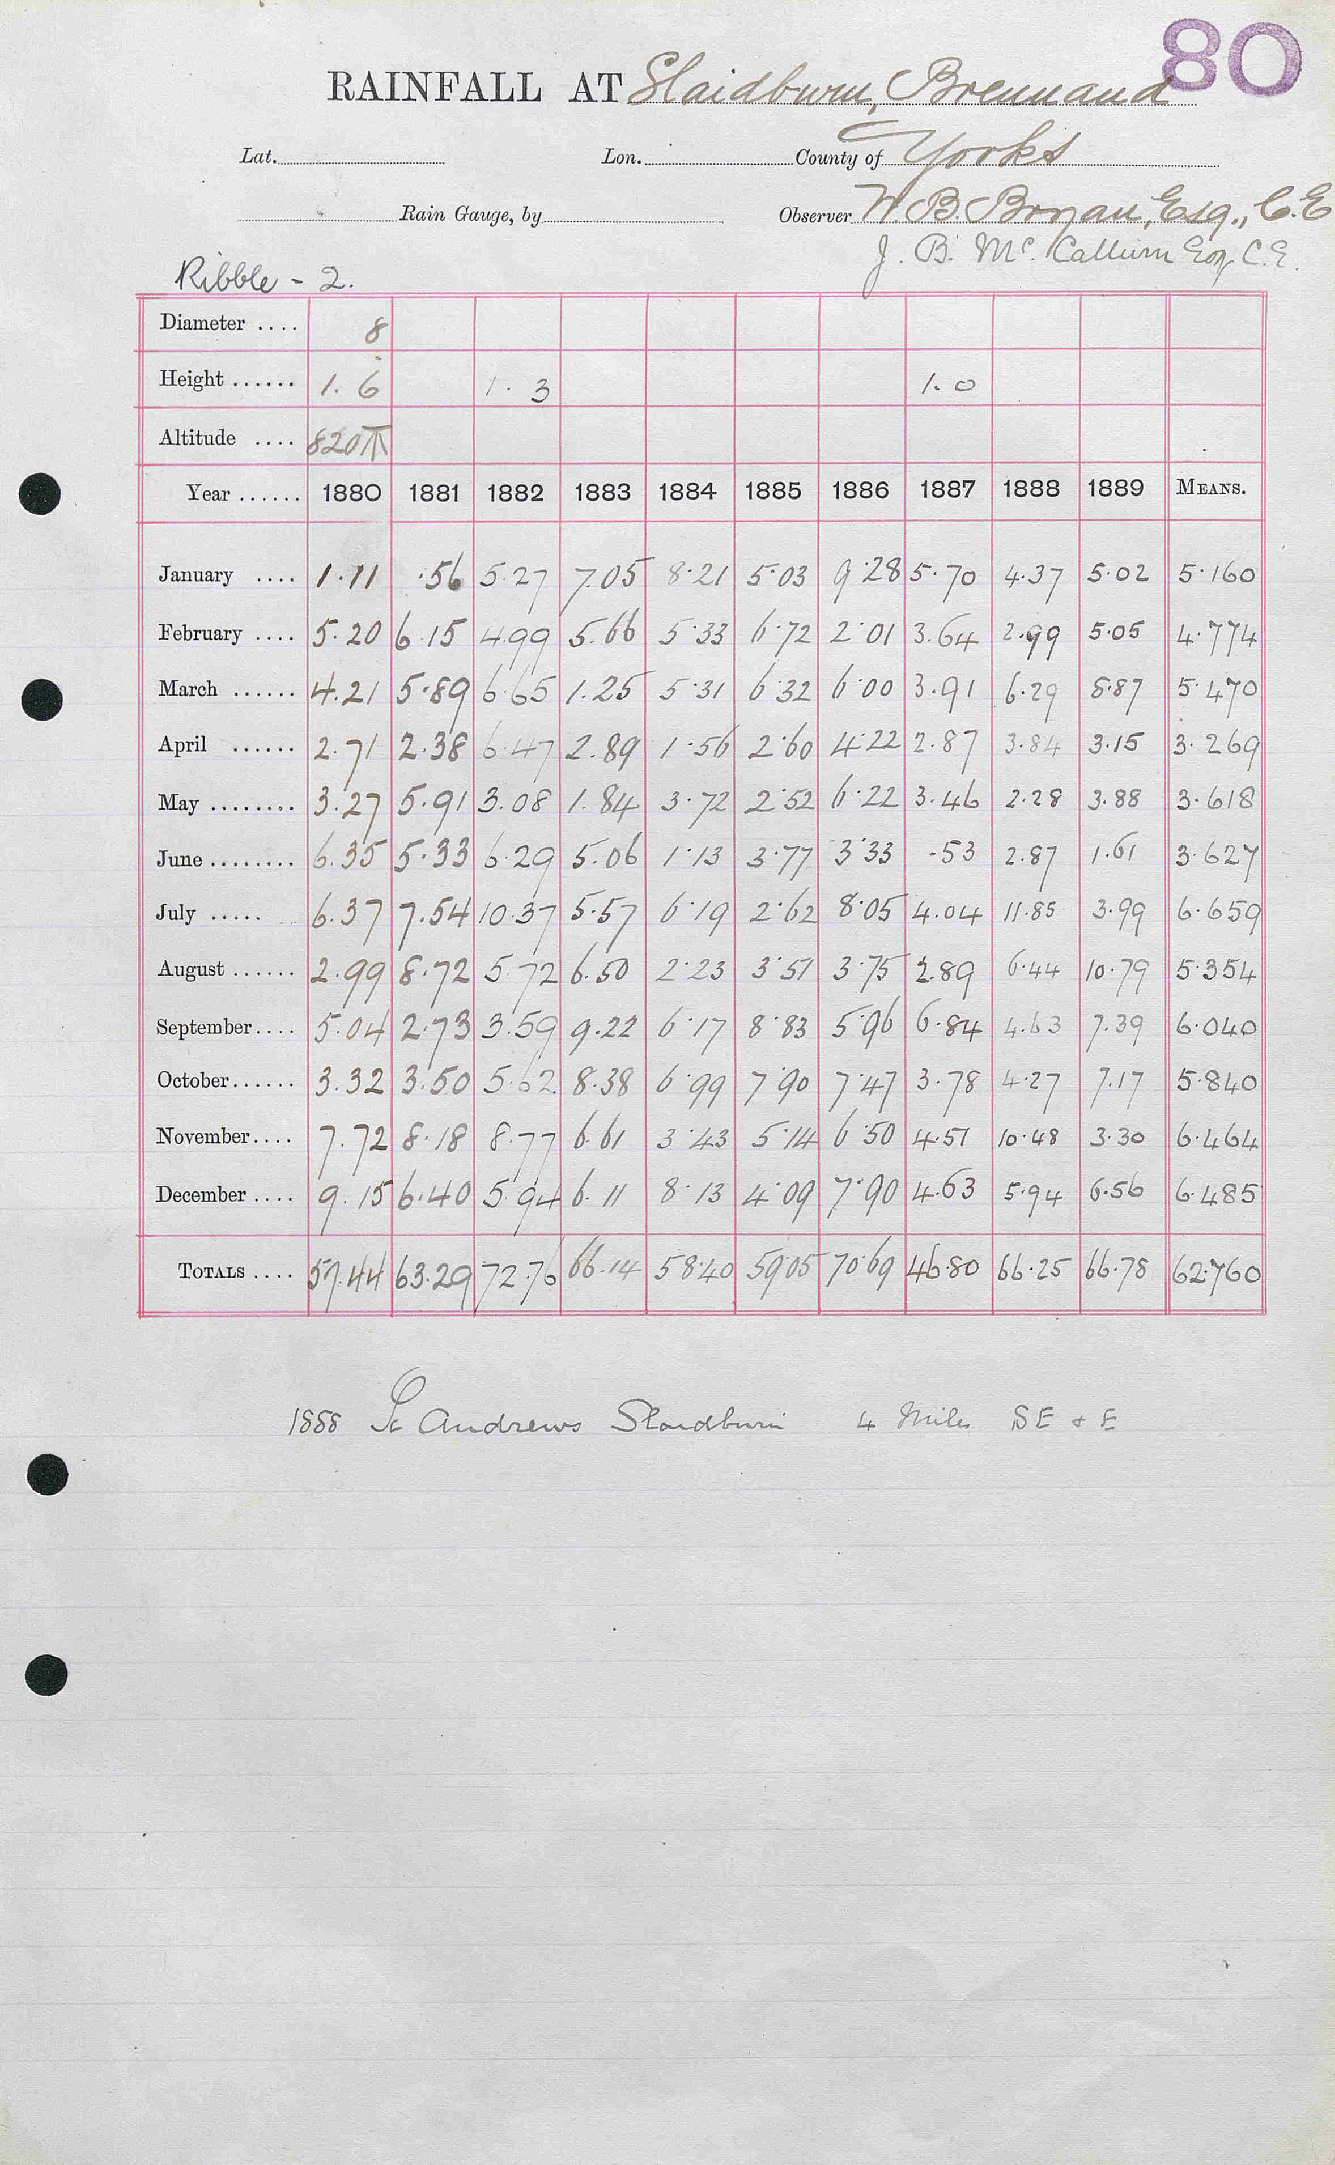 80
RAINFALL AT Slaidburn, Brennand
Lat. Lon. County of Yorks
Rain Gauge, by Observer W. B. Bryan, Esq., C.E
J. B. Mc. Callum Esq, C.E.
Ribble - 2.
Diameter .... 8
Height ...... 1. 6 1. 3 1. 0
Altitude .... 820
Year ...... 1880 1881 1882 1883 1884 1885 1886 1887 1888 1889 MEANS.
January .... 1.11 .56 5.27 7.05 8.21 5.03 9.28 5.70 4.37 5.02 5.160
February .... 5.20 6.15 4.99 5.66 5.33 6.72 2.01 3.64 2.99 5.05 4.774
March ...... 4.21 5.89 6.65 1.25 5.31 6.32 6.00 3.91 6.29 8.87 5.470
April ...... 2.71 2.38 6.47 2.89 1.56 2.60 4.22 2.87 3.84 3.15 3.269
May ........ 3.27 5.91 3.08 1.84 3.72 2.52 6.22 3.46 2.28 3.88 3.618
June ........ 6.35 5.33 6.29 5.06 1.13 3.77 3.33 .53 2.87 1.61 3.627
July ..... 6.37 7.54 10.37 5.57 6.19 2.62 8.05 4.04 11.85 3.99 6.659
August ...... 2.99 8.72 5.72 6.50 2.23 3.51 3.75 2.89 6.44 10.79 5.354
September .... 5.04 2.73 3.59 9.22 6.17 8.83 5.96 6.84 4.63 7.39 6.040
October ...... 3.32 3.50 5.62 8.38 6.99 7.90 7.47 3.78 4.27 7.17 5.840
November .... 7.72 8.18 8.77 6.61 3.43 5.14 6.50 4.51 10.48 3.30 6.464
December .... 9.15 6.40 5.94 6.11 8.13 4.09 7.90 4.63 5.94 6.56 6.485
TOTALS .... 57.44 63.29 72.76 66.14 58.40 59.05 70.69 46.80 66.25 66.78 62.760
1888 St Andrews Slaidburn 4 Miles SE + E